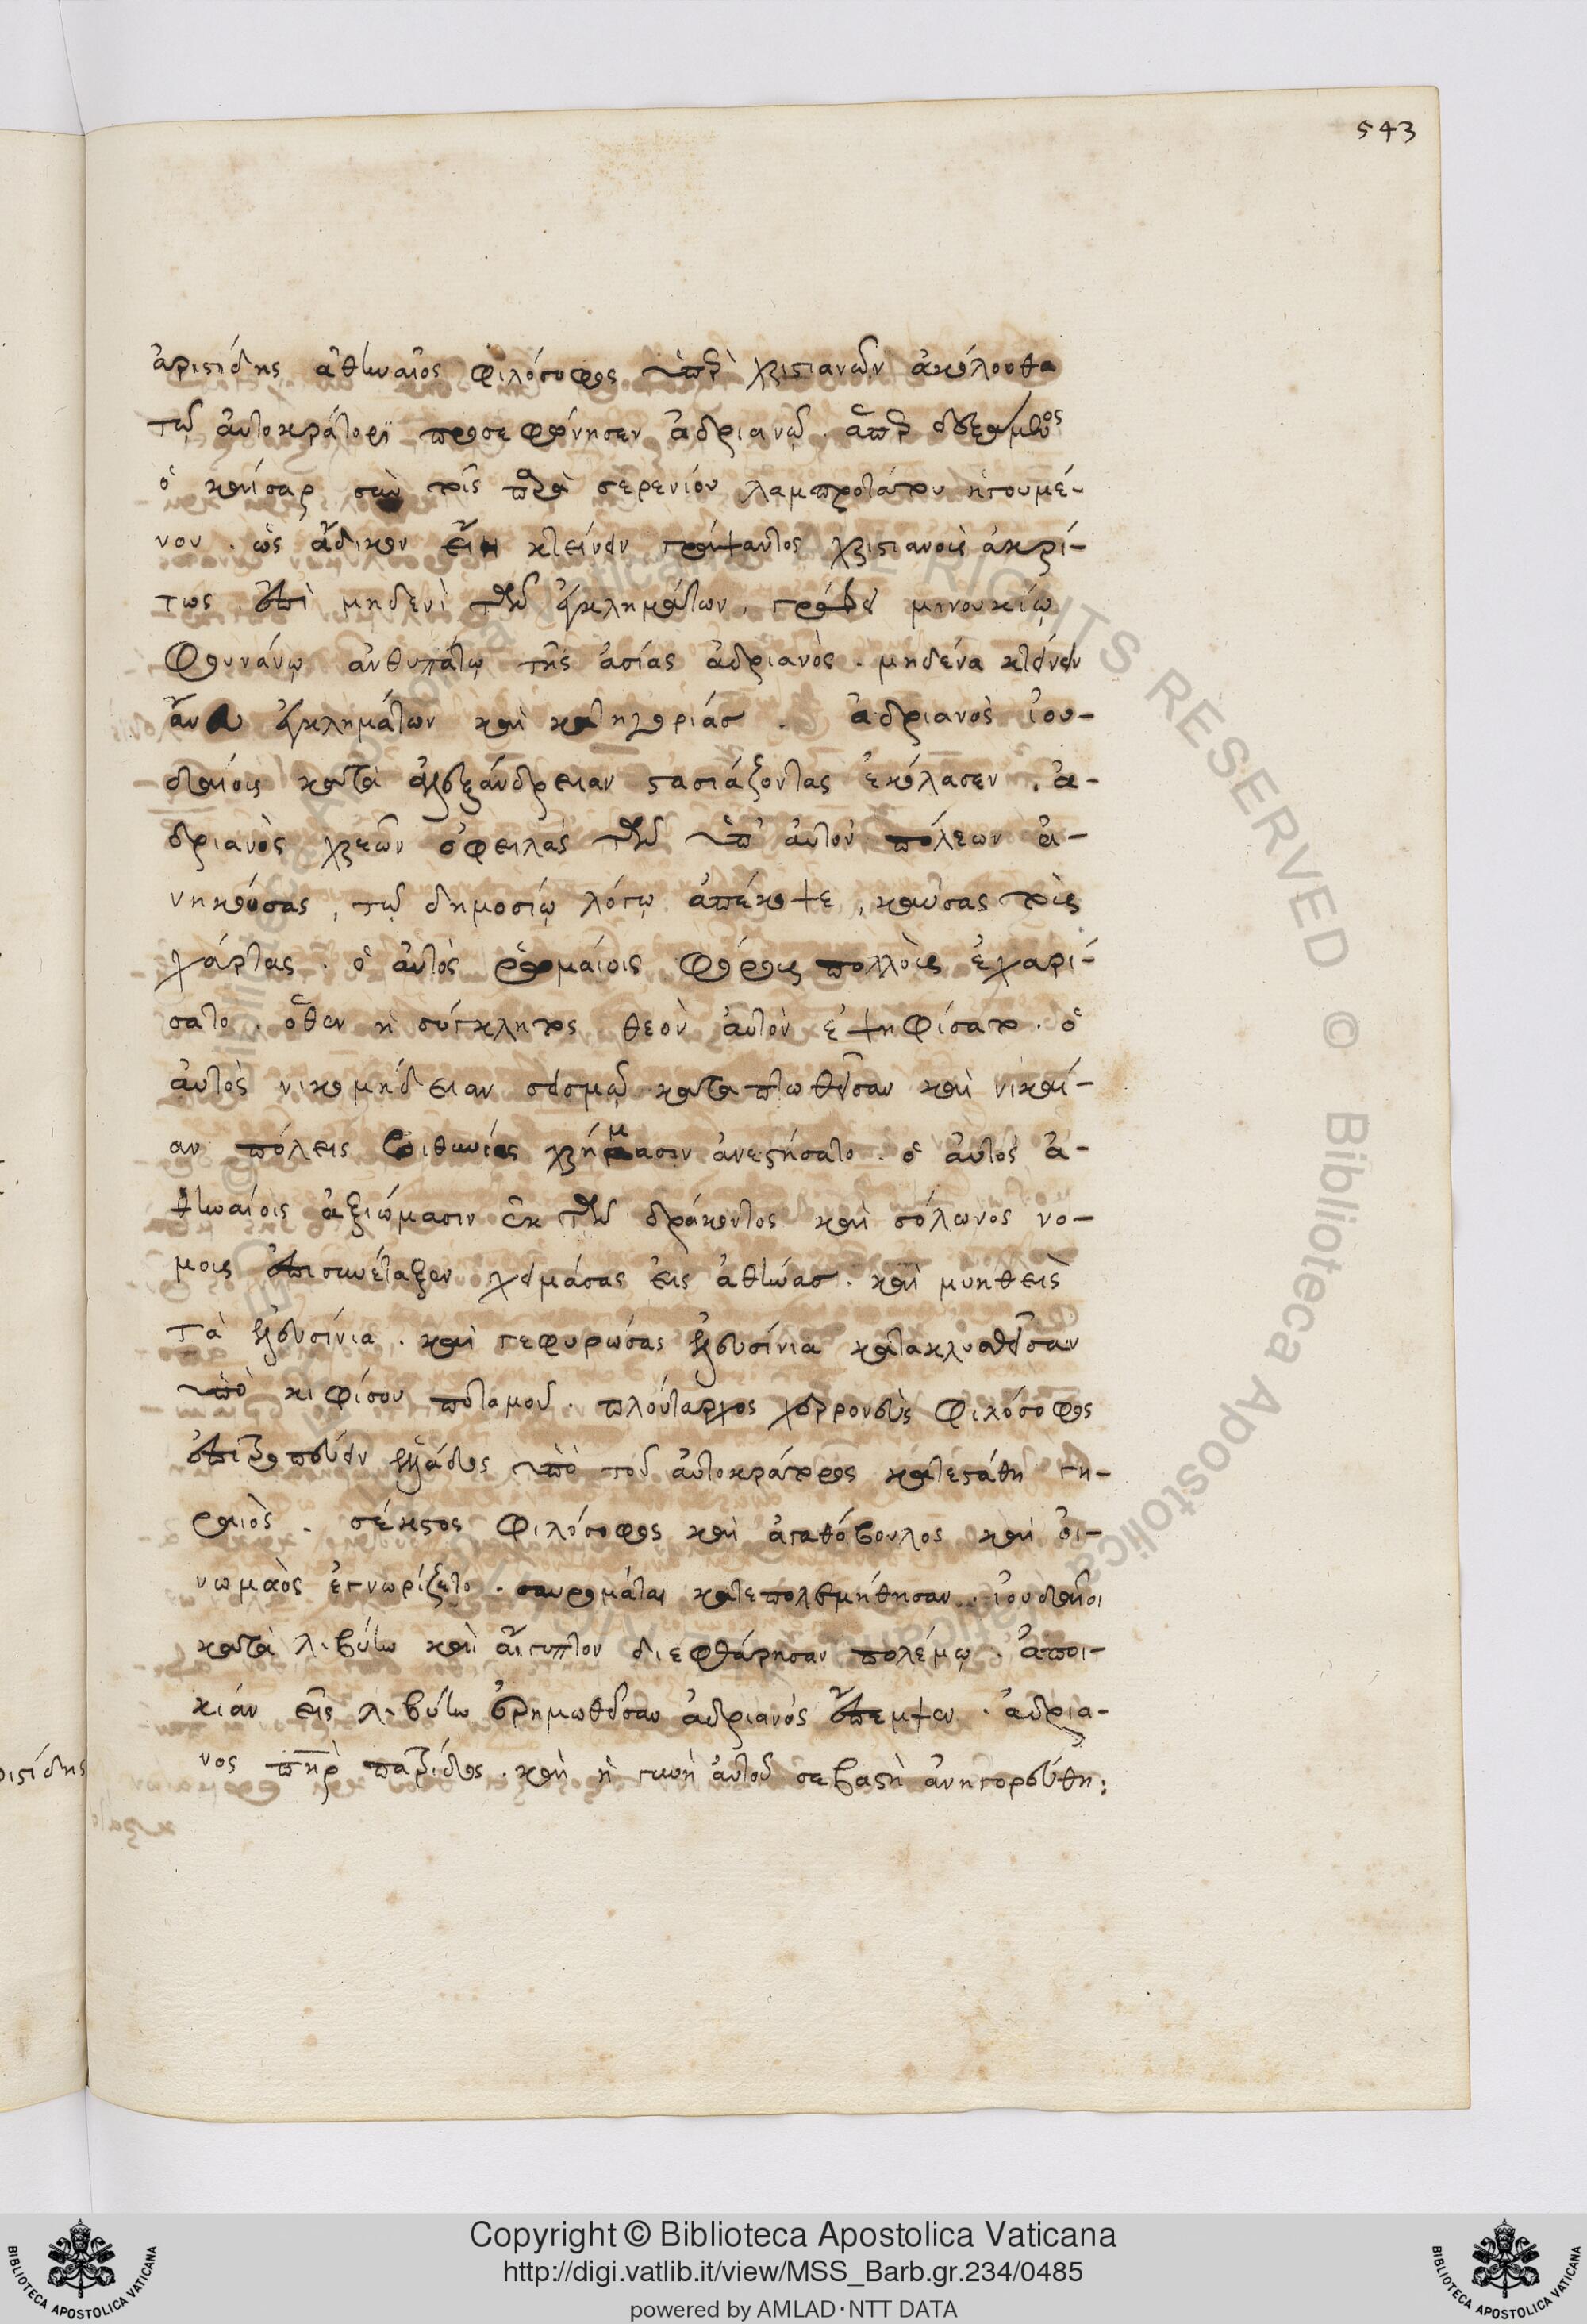 543
ἀριστίδης ἀθηναῖος φιλόσοφος ὑπὲρ χριστιανῶν ἀκόλουθα
τῷ αὐτοκράτορι προσεφώνησεν ἀδριανῷ. ἅπερ δεξάμενος
ὁ καῖσαρ σὺν τοῖς παρὰ σερενίου λαμπροτάτου ἡγουμέ-
νου. ὡς ἄδικον εἴη κτείνειν γράψαντος χριστιανοὺς ἀκρί-
τως ἐπὶ μηδενὶ τῶν ἐγκλημάτων, γράφει μινουκίῳ
φουνάνῳ ἀνθυπάτῳ τῆς ἀσίας ἀδριανὸς. μηδένα κτείνειν
ἄνευ ἐγκλημάτων καὶ κατηγορίας. ἀδριανὸς ἰου-
δαίοις κατὰ ἀλεξάνδρειαν στασιάζοντας ἐκόλασεν. ἀ-
δριανὸς χρεῶν ὀφειλὰς τῶν ὑπ' αὐτὸν πόλεων ἀ-
νηκούσας, τῷ δημοσίῳ λόγῳ ἀπέκοψε, καύσας τοὺς
χάρτας. ὁ αὐτὸς ῥωμαίοις φόρους πολλοὺς ἐχαρί-
σατο. ὅθεν ἡ σύγκλητος θεὸν αὐτὸν ἐψηφίσατο. ὁ
αὐτὸς νικομήδειαν σεισμῷ καταπτωθεῖσαν καὶ νίκαι-
αν πόλεις βιθυνίας χρήμασιν ἀνεστήσατο. ὁ αὐτὸς ἀ-
θηναίοις ἀξιώμασιν ἐκ τῶν δράκοντος καὶ σόλωνος νό-
μοις ἐπισυνέταξεν χειμάσας εἰς ἀθήνας. καὶ μυηθεὶς
τὰ ἐλευσίνια. καὶ γεφυρώσας ἐλευσίνια κατακλυσθεῖσαν
ὑπὸ κιφίσου ποταμοῦ. πλούταρχος χερρονεὺς φιλόσοφος
ἐπιτροπεύειν ἑλλάδος ὑπὸ τοῦ αὐτοκράτορος κατεστάθη γη-
ραιὸς. σέκστος φιλόσοφος καὶ ἀγαθόβουλος καὶ οἰ-
νωμαὸς ἐγνωρίζετο. σαυρομάται κατεπολεμήθησαν. ἰουδαῖοι
κατὰ λιβύην καὶ αἴγυπτον διεφθάρησαν πολέμῳ. ἀποι-
κίαν εἰς λιβύην ἐρημωθεῖσαν ἀδριανὸς ἔπεμψεν. ἀδρια-
νος πηρ πατρίδος. καὶ ἡ γυνὴ αὐτοῦ σεβαστὴ ἀνηγορεύθη:
Copyright © Biblioteca Apostolica Vaticana
http://digi.vatlib.it/view/MSS_Barb.gr.234/0485
powered by AMLAD·NTT DATA